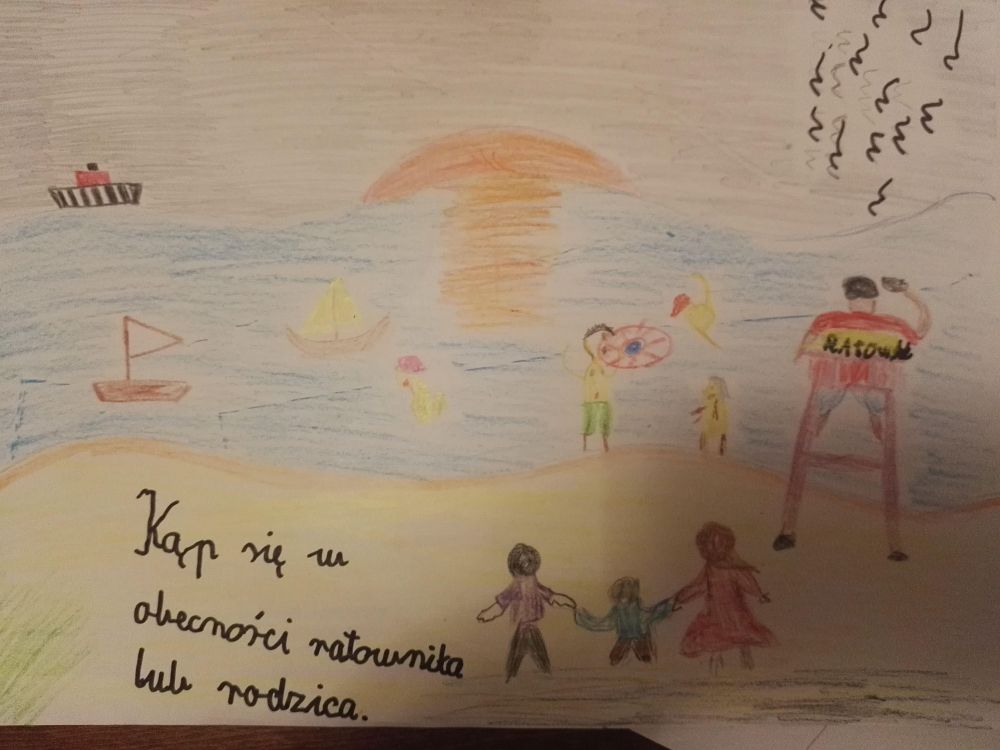 RATOWNIK
Kąp się w
obecności ratownika
lub rodzica.